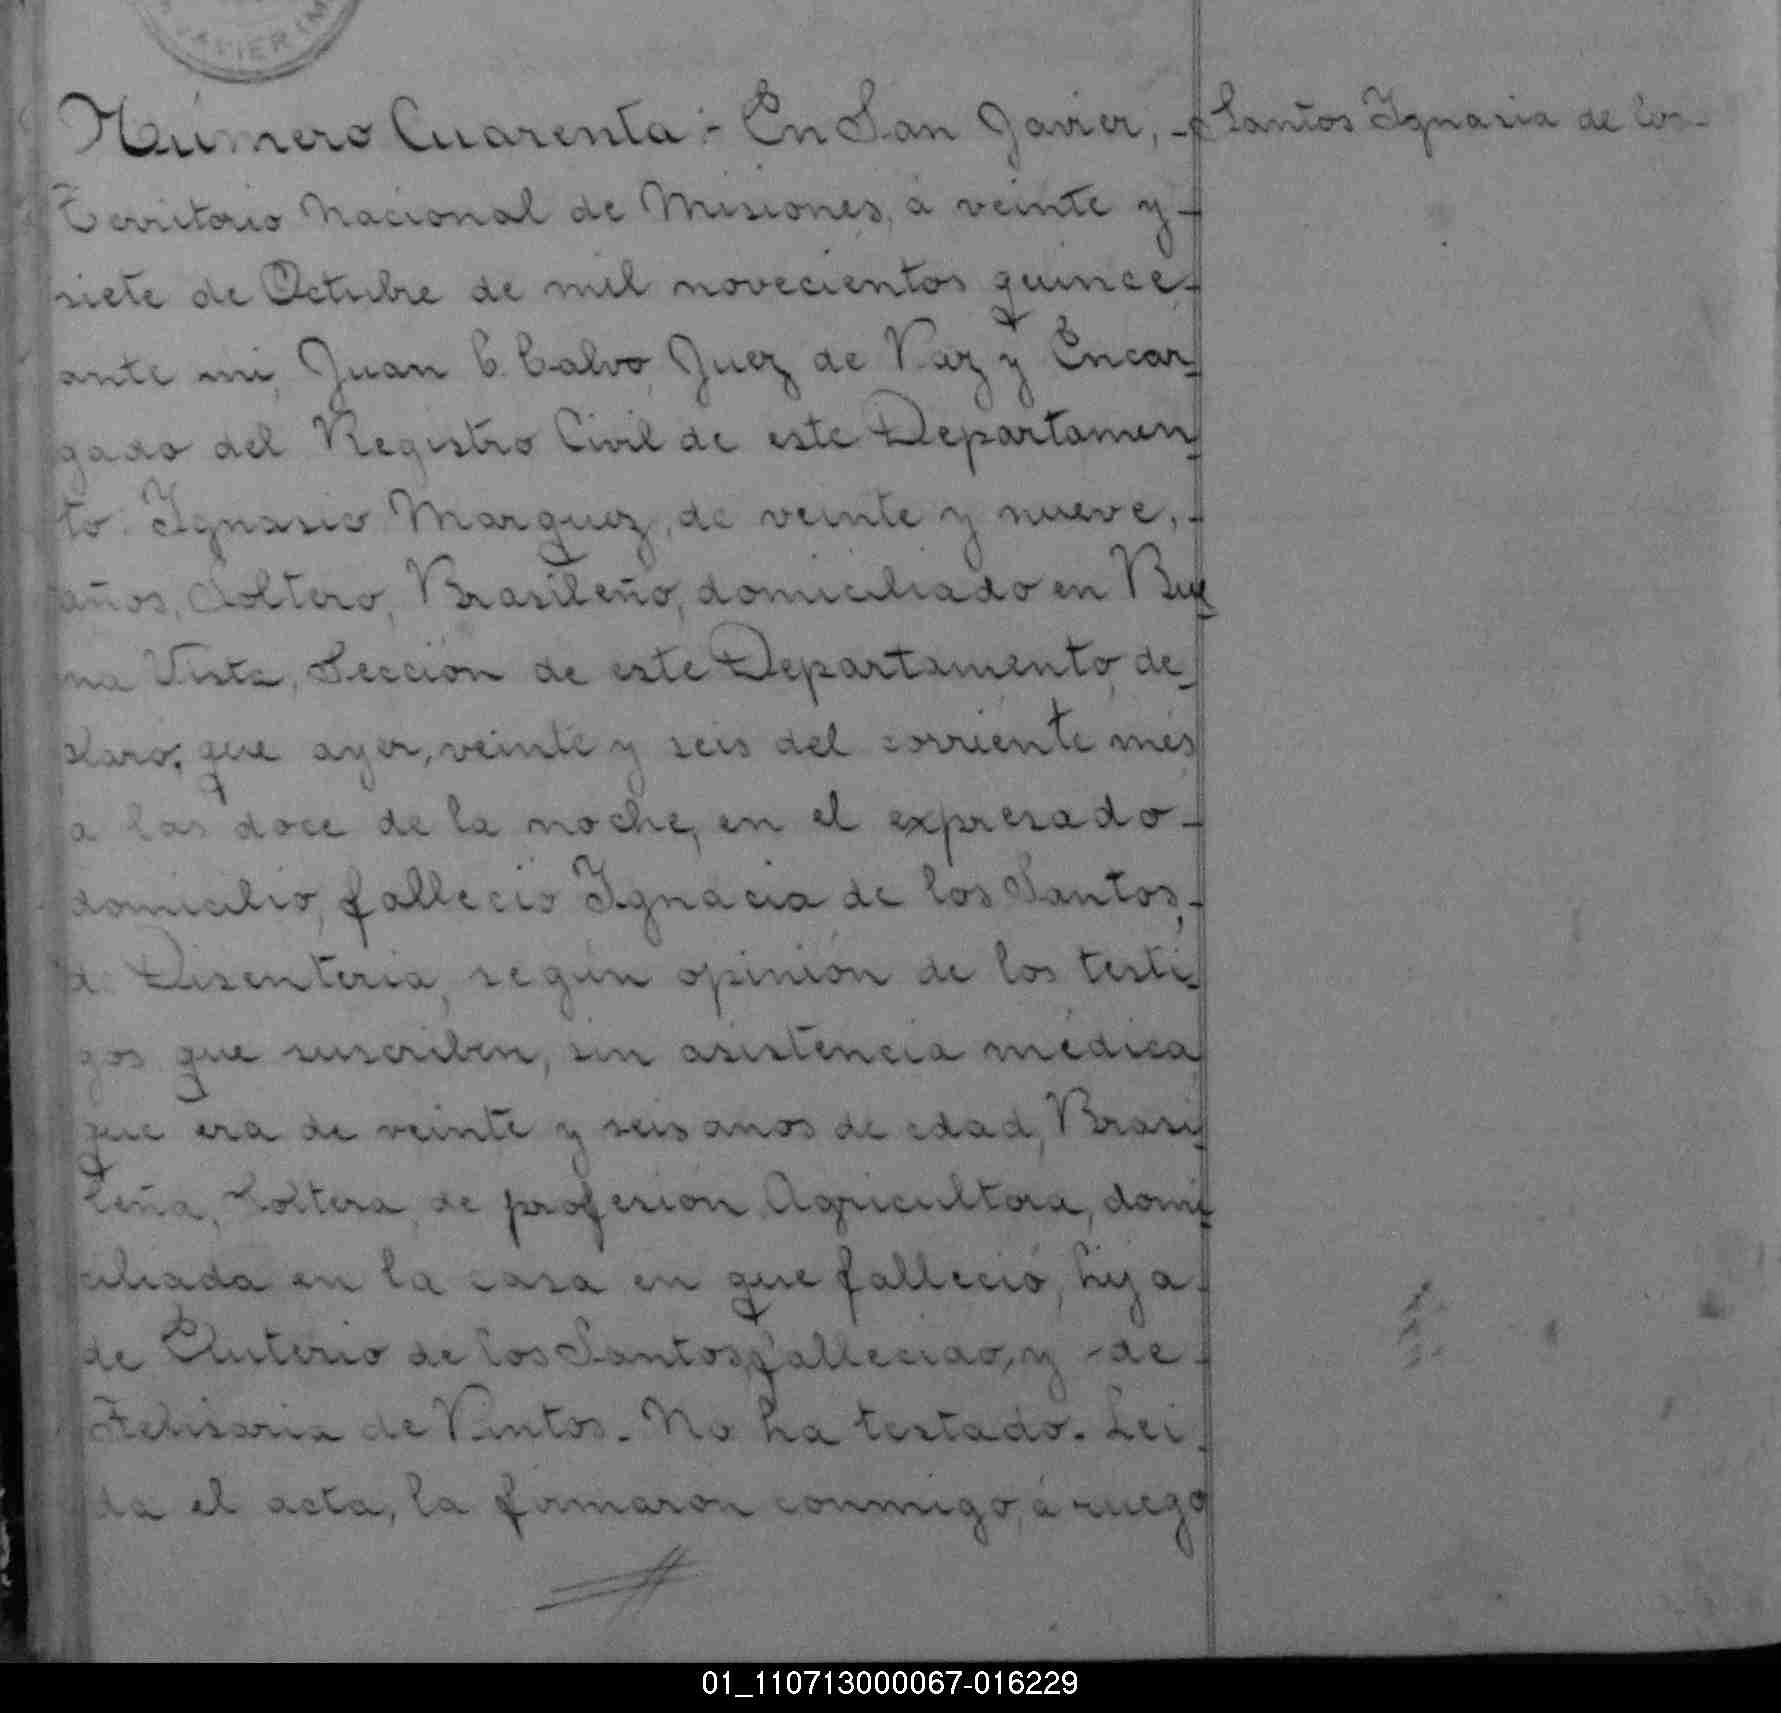 JAVIER (M
Número Cuarenta:- En San Javier, -
Santos Ignasia de los-
Territorio Nacional de Misiones, á veinte y-
siete de Octubre de mil novecientos quince-
ante mi, Juan C. Calvo, Juez de Paz y Encar-
gado del Registro Civil de este Departamen-
to. Ignasio Marquez, de veinte y nueve,-
años, Soltero, Brasileño, domiciliado en Bue-
na Vista, Sección de este Departamento, de-
claró; que ayer, veinte y seis del corriente més
a las doce de la noche, en el expresado-
domicilio, falleció Ignacia de los Santos,-
d. Disenteria, según opinión de los testi-
gos que suscriben, sin asistencia médica
que era de veinte y seis anos de edad, Brasi-
leña, Soltera, de profesión Agricultora, domi-
ciliada en la casa en que falleció, hija-
de Eluterio de los Santos, fallecido, y -de-
de Pintos.- No ha testado.- Lei-
da el acta, la firmaron conmigo, á ruego
01_110713000067-016229